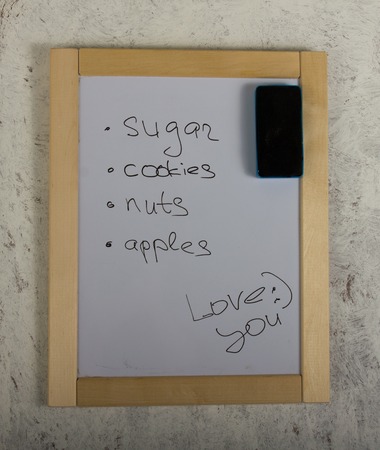 • sugar
• cookies
• nuts
• apples
Love :)
you